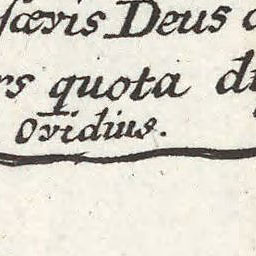 scævis Deus
rs quota di
Ovidius.